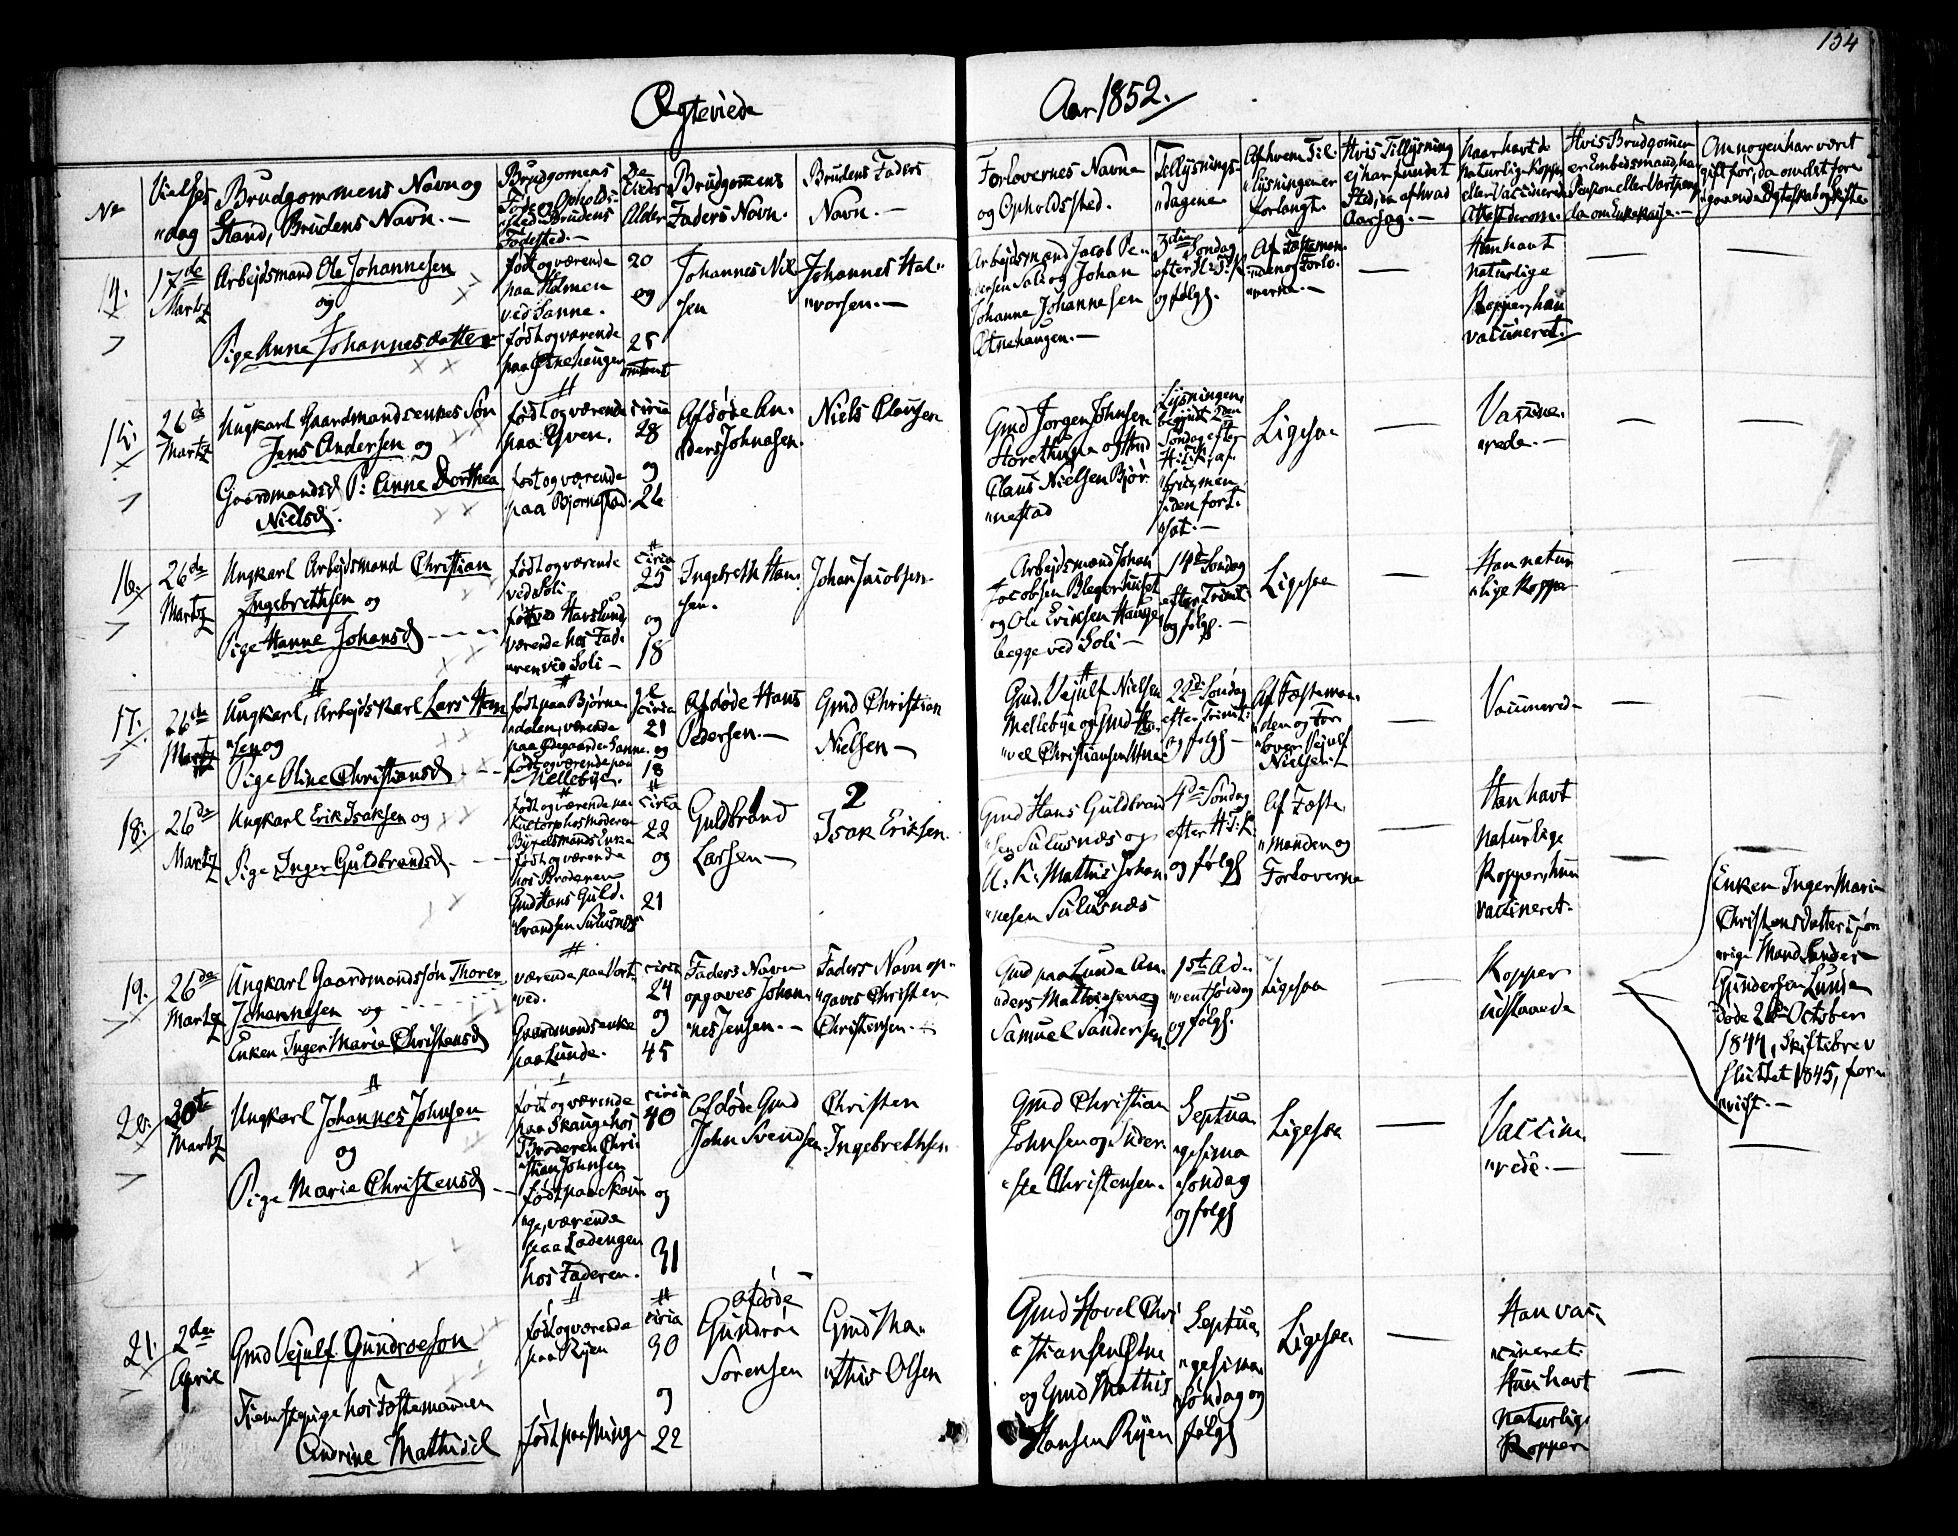 134
Ægteviede
Aar 1852.
No
Vielses
"dag
Brudgommens Navn og
Stand, Brudens Navn. —
Brudgommens
Føde og Opholds-
sted. Brudens
Fødested. —
De
Alder
Brudgommens
Faders Navn.
Brudens Faders
Navn. —
Forlovernes Navne
og Opholdssted.
Tillysnings-
"dagene
Af hvem Til-
"lysningen er
forlangt.
Hvis Tillysning
ej har fundet
Sted, da af hvad
Aarsag. —
Naar havt de
naturlige Kopper
eller Vaccinerede
Attest derom.
Hvis Brudgommen
er Embedsmand, har
Pension eller
da om Enkekasse. —
Om nogen har været
gift før, da om det fore
"gaaende Ægteskab og Skifte
14.
17de
Martz
Arbejdsmand Ole Johannesen
og
Pige Anne Johannesdatter
født og værende
paa Holmen
ved Sanne.
født og værende
paa Østnehaugen
20
og
25
omtrent
Johannes Niel
"sen
Johannes Hal-
"vorsen. —
Arbejdsmand Jacob Pe-
"dersen Soli og Johan
Johanne Johannesen
Østnehaugen. —
3die Søndag
efter H: 3: K
og følgd.
Af Fæsteman-
"den og Forlo-
"verne. —
Han havt
naturlige
Kopper, hun
vaccineret. —
15.
26de
Martz
Ungkarl Gaardmandsenkes Søn
Jens Andersen og
Gaardmandsd P: Anne Dorthea
Nielsd.
født og værende
paa Yven.
født og værende
paa Bjørnestad.
circa
28
og
26
Afdøde An-
"ders Johnsen.
Niels Clausen
Gmd Jørgen Johnsen
Storethune og Gmd
Claus Nielsen Bjør-
"nestad
Lysningen
begyndt 2den
Søndag efter
H: 3: K,
men
siden fort-
"sat. —
Ligesaa
Vaccine-
"rede. —
16.
26de
Martz
Ungkarl Arbejdsmand Christian
Ingebrethsen og
Pige Hanne Johansd
født og værende
ved Soli
født ved Havslund,
værende hos Fad-
"eren ved Soli —
circa
25
og
18
Ingebreth Han-
"sen.
Johan Jacobsen
Arbejdsmand Johan
Jacobsen Blegerhuset
og Ole Eriksen Hauge
begge ved Soli —
14de Søndag
efter Trinit:
og følgd. —
Ligesaa
Han natur
"lige Kopper
17.
26de
Martz
Ungkarl, Arbejdskarl Lars Han-
"sen og
Pige Oline Christiansd
født paa Bjørne-
"dalen, værende
paa Ødegaarden Sanne.
født og værende paa
Mellebye.
circa
21
og
18
Afdøde Hans
Pedersen. —
Gmd Christian
Nielsen —
Gmd. Vejulf Nielsen
Mellebye og Gmd Ho-
"vel Christiansen Utne
22de Søndag
efter Trinit:
og følgd —
Af Fæsteman-
"den og For-
"lover Vejulf
Nielsen.
Vaccinered
18.
26de
Martz
Ungkarl Erik Isaksen og
Pige Inger Guldbrandsd
født og værende paa
hos Moderen
Bygselmands Enke
født og værende
hos Broderen
Gmd Hans Guld-
"brandsen Sulusnæs
circa
22
og
21
1
Guldbrand
Larsen —
2
Isak Eriksen.
Gmd Hans Guldbrand
"sen Sulusnæs og
U: K: Mathis Johan-
"nesen Sulusnæs
4de Søndag
efter H: 3: K:
og følgd
Af Fæste
"Manden og
Forloverne
Han havt
naturlige
Kopper, hun
vaccineret.
19.
26de
Martz
Ungkarl Gaardmandssøn Thorer
Johannesen og
Enken Inger Marie Christensd
værende paa Hort-
"ved.
Gaardmandsenke
paa Lunde.
circa
24
og
45
Faders Navn
opgaves Johan-
"nes Jensen. —
Faders Navn op-
"gaves Christen
Christensen. —
Gmd paa Lunde An-
"ders Mathiesen og
Samuel Sandersen.
1ste Ad-
"ventsøndag
og følgd.
Ligesaa
Kopper
udstaaede
Enken Inger Marie
Christensdatters for-
"rige Mand Sander
Gundersen Lunde
døde 26de October
1844, Skiftebrev
sluttet 1845, fore-
"viist. —
20.
20de
Martz
Ungkarl Johannes Johnsen
og
Pige Marie Christensd
født og værende
paa Skauge hos
Broderen Chri-
"stian Johnsen
født paa Skau-
"ge, værende
paa Ladengen
hos Faderen.
circa
40
og
31
Afdøde Gmd
John Svendsen
Christen
Ingebrethsen
Gmd Christian
Johnsen og Inder-
"ste Christensen.
Septua-
"gesima
Søndag
og følgd
Ligesaa
Vaccine-
"rede. —
21.
2den
April
Gmd Vejulf Gundroesøn
Tjenstepige hos Fæstemanden
Andrine Mathisd
født og værende
paa Ryen
født paa Minge
circa
30
og
22
afdøde
Gundroe
Sørensen
Gmd Ma-
"this Olsen
Gmd Hovel Chri-
"stiansen Utne
og Gmd Mathis
Hansen Ryen
Septua-
"gesima
Søndag og
følgd
Ligesaa
Han vac-
"cineret
Hun havt
naturlige
Kopper